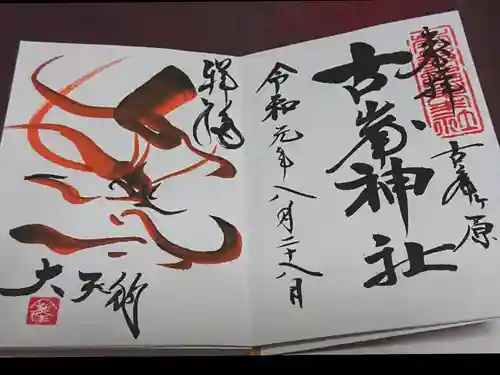 奉拝
古峯ヶ原
古峯神社
令和元年八月二十八日
大天狗